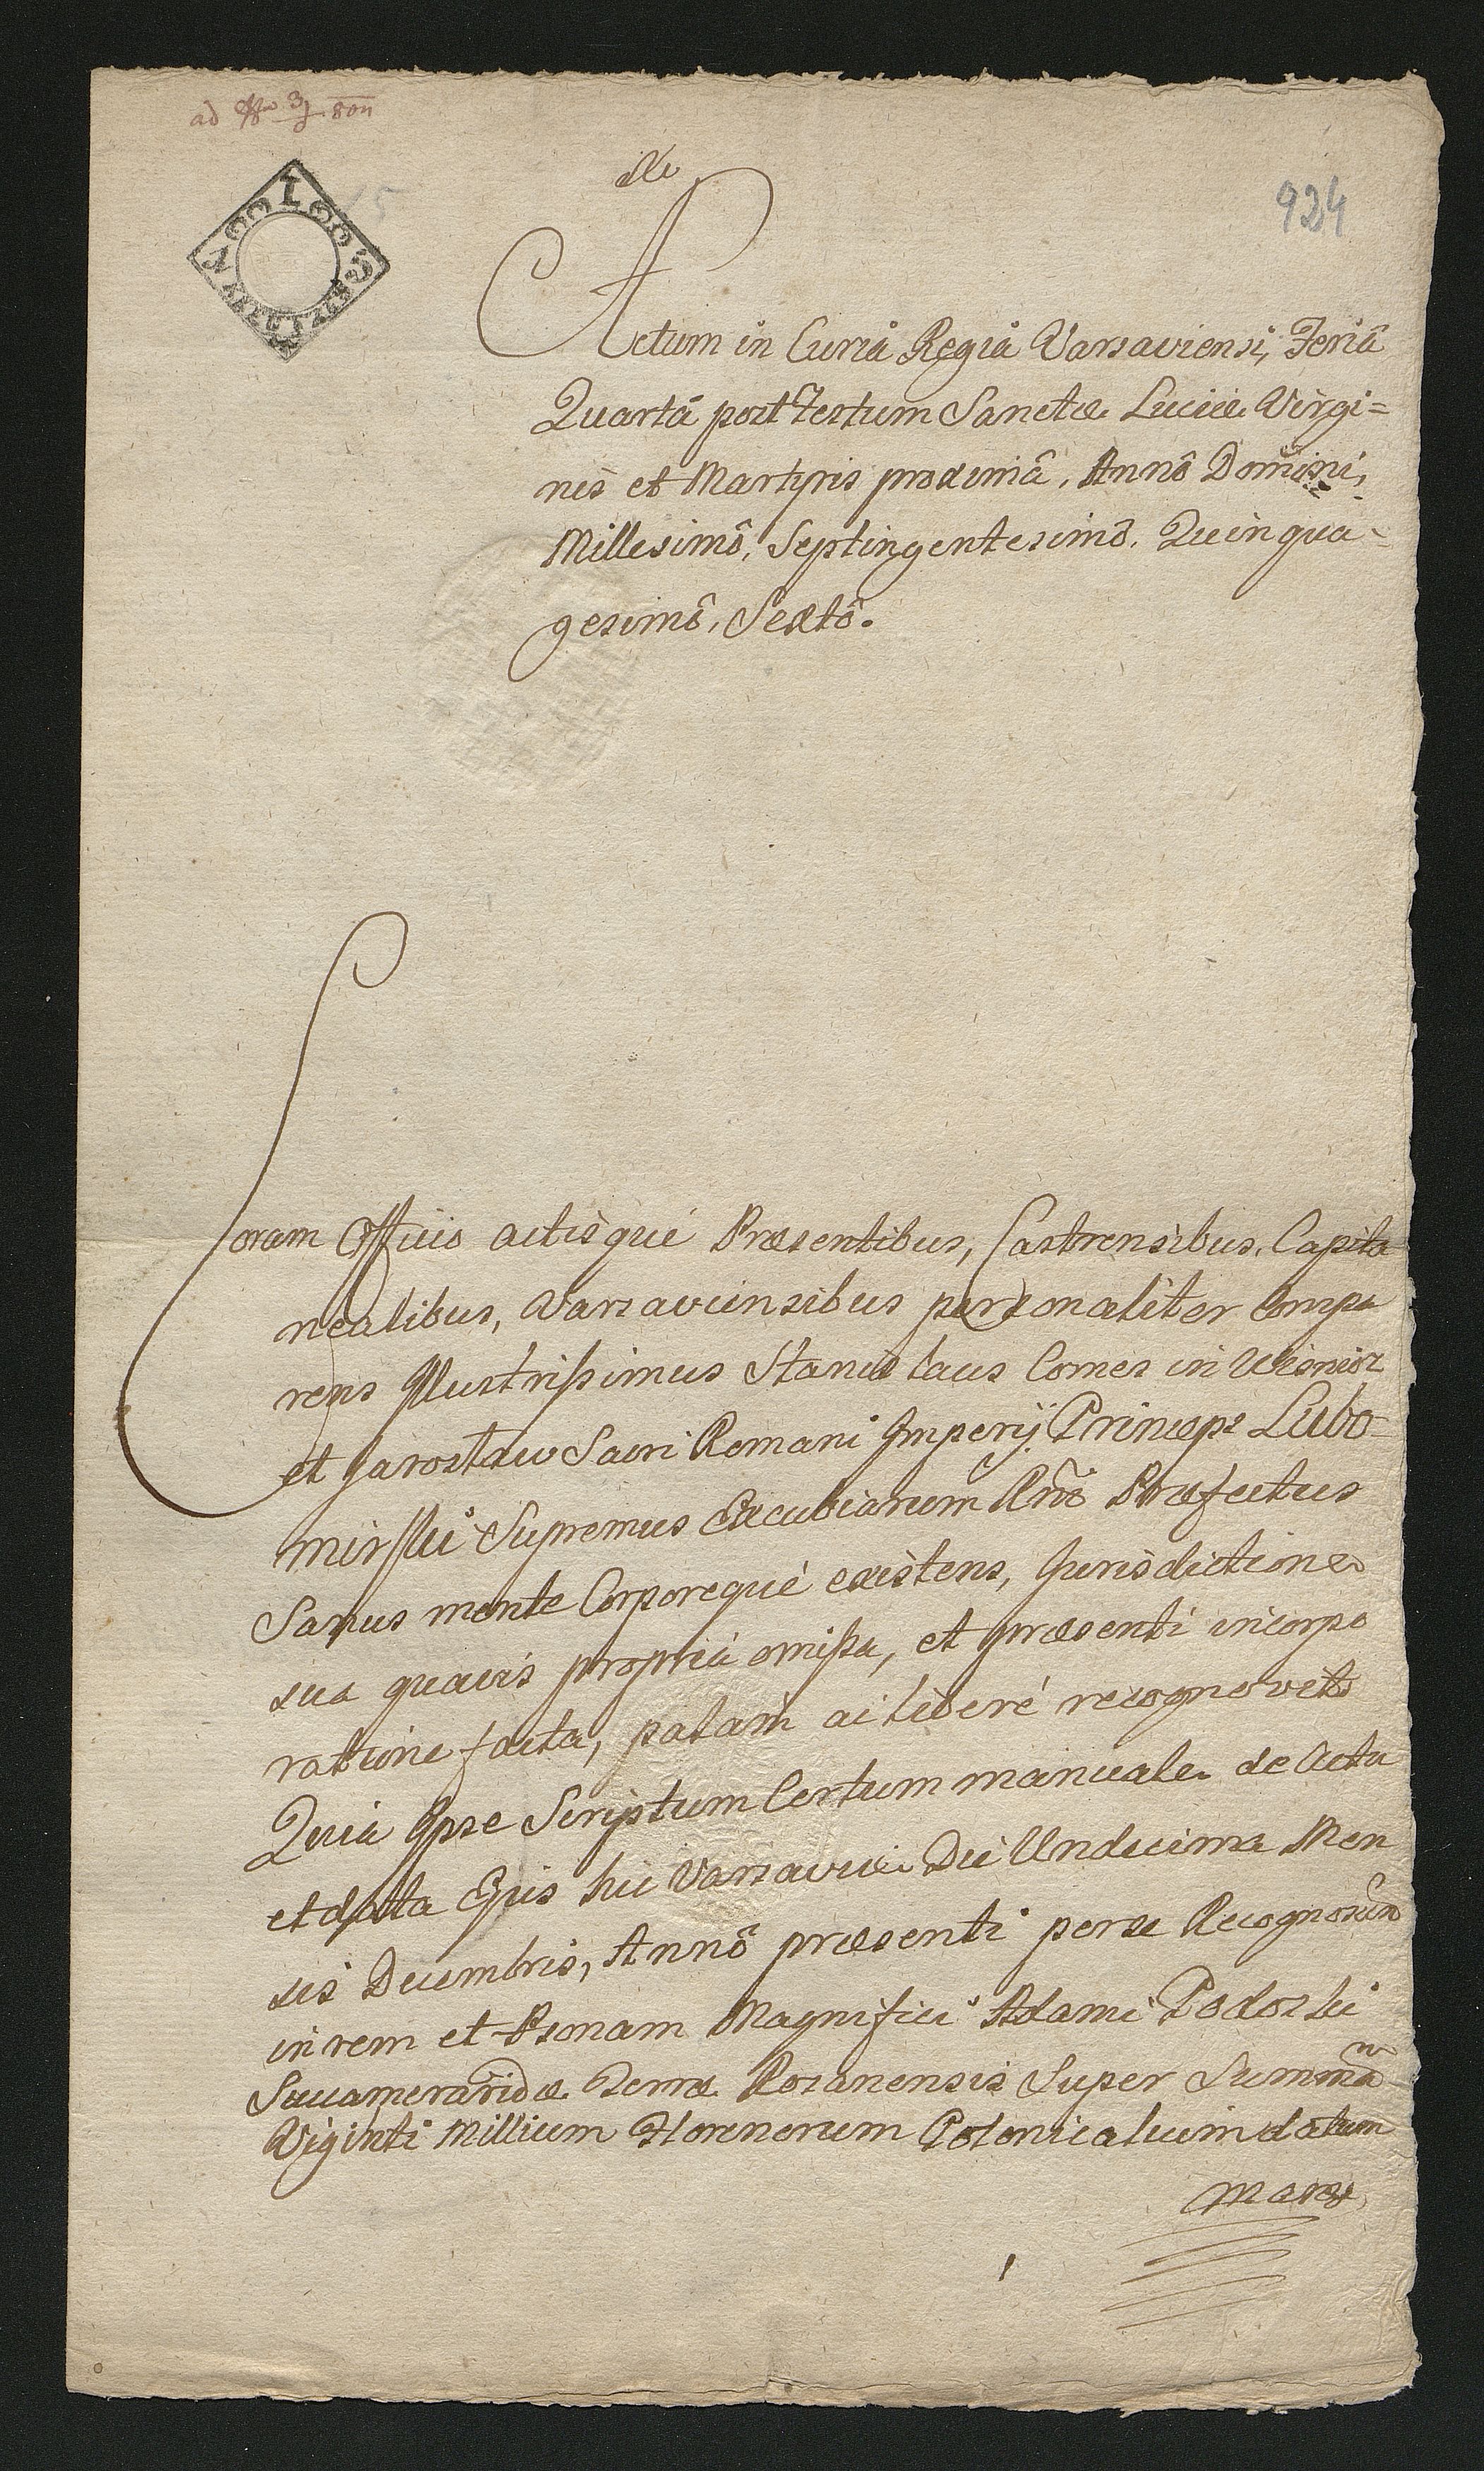 924
Actum in Curiâ Regiâ Varsaviensi, Feriâ
Quartâ post Festum Sanctæ Luciæ Virgi=
nis et Martyris proximâ, Annô Domini,
Millesimô, Septingentesimô, Quinqua-
gesimô, Sextô.
Coram Officio actisque Præsentibus, Castrensibus, Capita
nealibus, Varsaviensibus personaliter Compa
rens Illustrissimus Stanislaus Comes in Wisnicz
et Jarosław Sacri Romani Imperij Princeps Lubo-
mirski Supremus Excubiarum Rni Præfectus
Sanus mente Corporequè existens, Jurisdictione
sua quavis propria omissa, et præsenti incorpo
ratione facta, palam ac liberè recognovit
Quia Ipse Scriptum Certum manuale de Acta
et datta Ejus hic Varsaviæ Die Undecima Men
sis Decembris, Annô præsenti per se Recognoscen
in rem et Psonam Magnifici Adami Podoski
Succameraridæ Terræ Rozanensis Super Summa
Viginti Millium Florenorum Polonicalium datum
manu